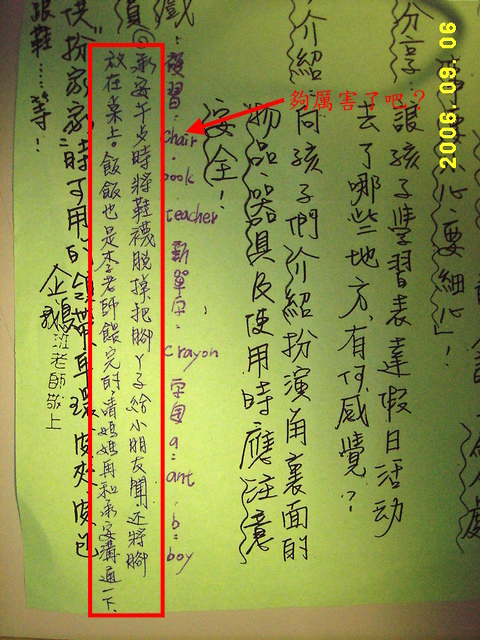 心要細心」!
分享：讓孩子學習表達假日活动
去了哪些地方，有何感覺？
介紹：向孩子們介紹扮演角裏面的
物品、器具及使用時應注意
安全！
複習：chair、book、teacher 新單字：crayon 字母a：ant、b：boy
◎承安午点時將鞋襪脫掉把腳丫子給小朋友聞，还將腳
放在桌上。飯飯也是李老師餵完的，請媽媽再和承安溝通一下。
供"扮家家"時可用的領帶、耳環、皮夾、皮包
跟鞋……等！
企鵝班老師敬上
夠厲害了吧？
2006.09.06